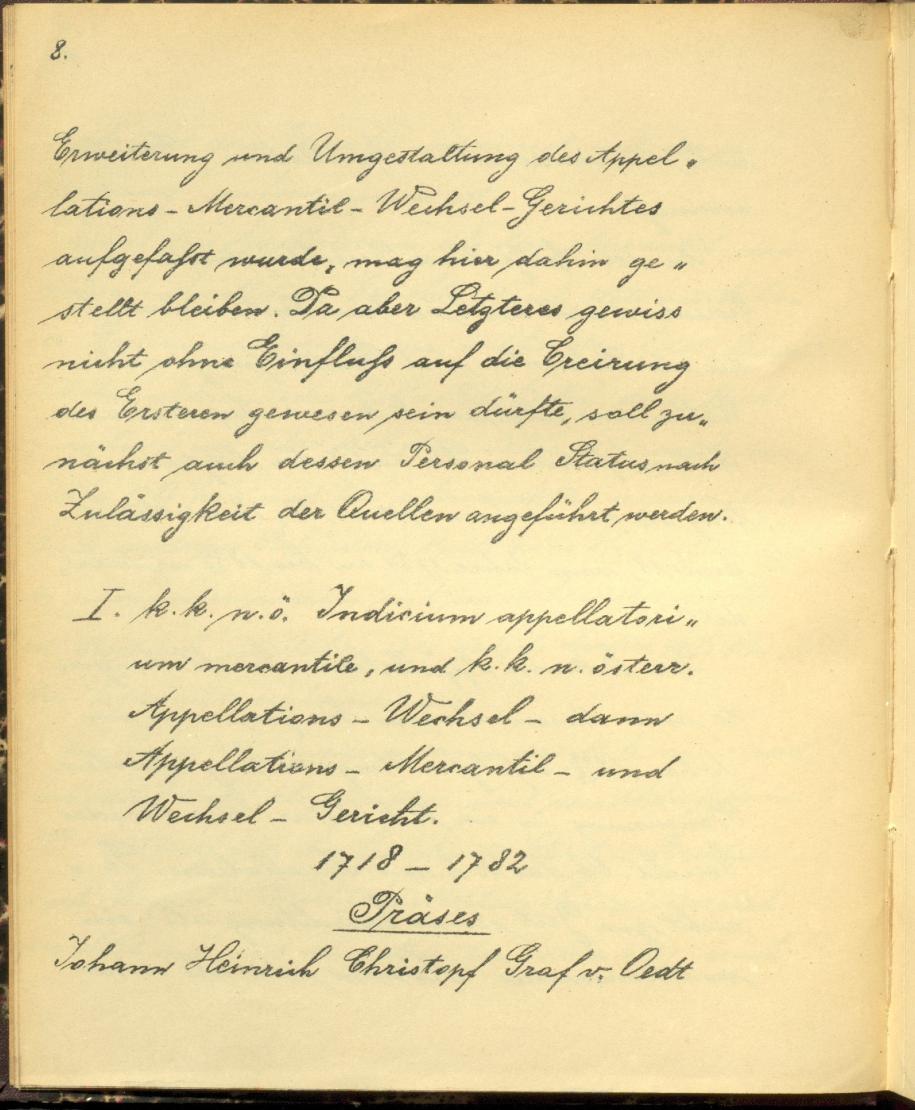 8.
Erweiterung und Umgestaltung des Appel„
lations-Mercantil-Wechsel-Gerichtes
aufgefaßt wurde, mag hier dahin ge„
stellt bleiben. Da aber Letzteres gewiss
nicht ohne Einfluß auf die Creirung
des Ersteren gewesen sein dürfte, soll zu„
nächst auch dessen Personal Status nach
Zulässigkeit der Quellen angeführt werden.
I. k.k. n.ö. Indicium appellatori„
um mercantile, und k.k. n. österr.
Appellations-Wechsel- dann
Appellations-Mercantil- und
Wechsel-Gericht.
1718-1782
Präses
Johann Heinrich Christopf Graf v. Oedt